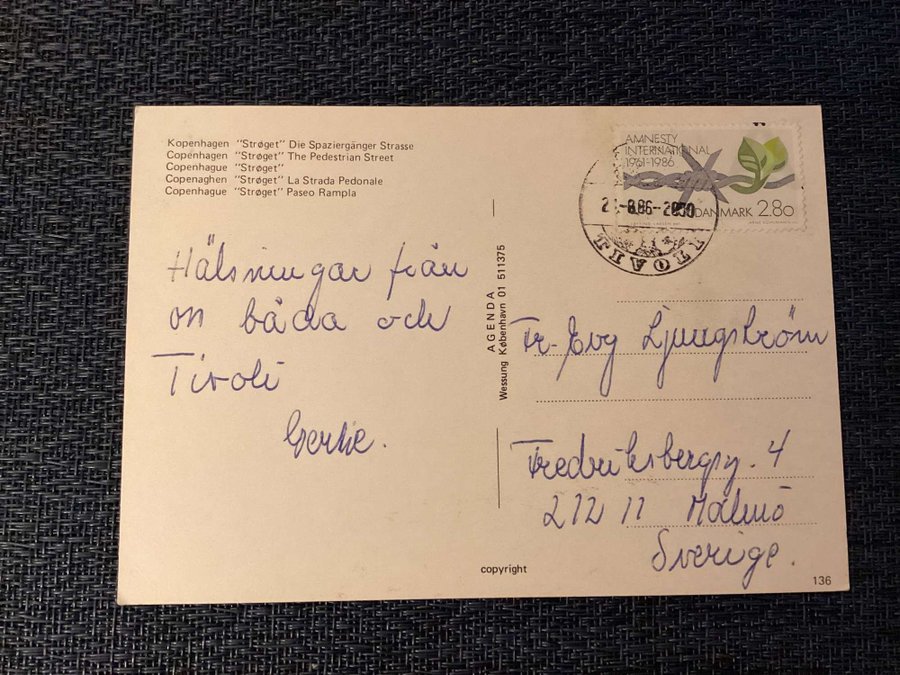 Kopenhagen "Strøget" Die Spaziergänger Strasse
Copenhagen "Strøget" The Pedestrian Street
Copenhague "Strøget"
Copenaghen "Strøget" La Strada Pedonale
Copenhague "Strøget" Paseo Rampla
Hälsningar från
on båda och
Tivoli
AGENDA
Wessung København 01 511375
AMNESTY
INTERNATIONAL
1961-1986
DANMARK 2.80
TIVOLI
Fr. Evy Ljungström
Fredriksbergsg. 4
212 11 Malmö
Sverige.
copyright
136